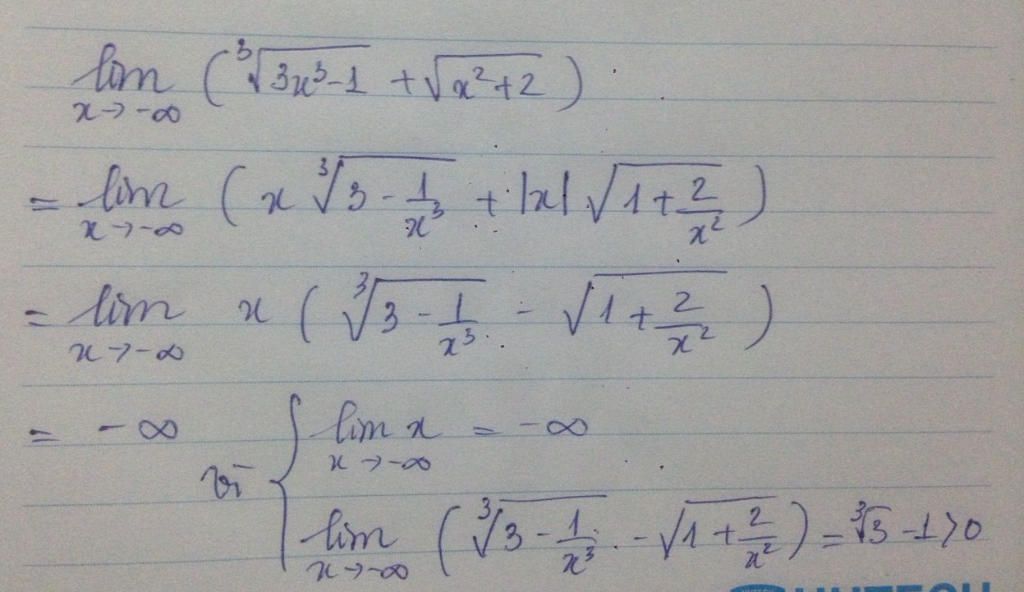 lim x→-∞ (∛(3x³-1) + √(x²+2))
= lim x→-∞ (x ∛(3 - 1/x³) + |x| √(1 + 2/x²))
= lim x→-∞ x (∛(3 - 1/x³) - √(1 + 2/x²))
= -∞ vì { lim x→-∞ x = -∞
lim x→-∞ (∛(3 - 1/x³) - √(1 + 2/x²)) = ∛3 - 1 > 0